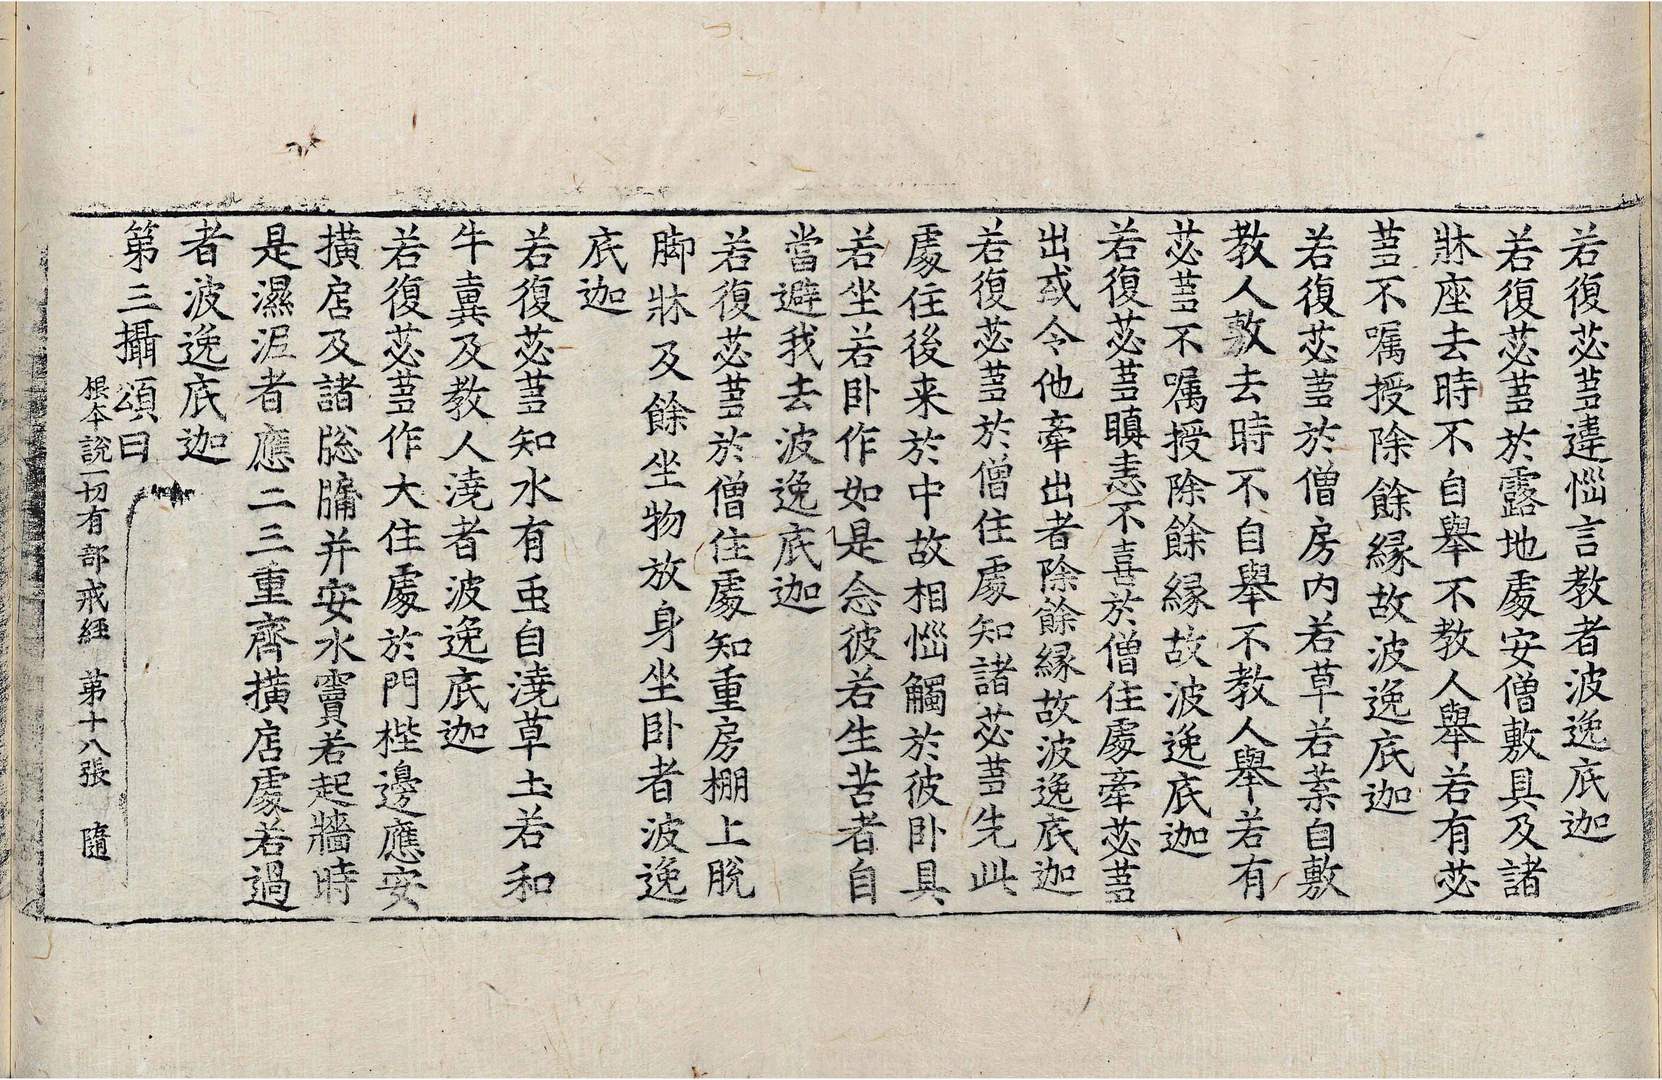 若復苾蒭違惱言教者波逸底迦
若復苾蒭於露地處安僧敷具及諸
牀座去時不自舉不教人舉若有苾
蒭不囑授除餘縁故波逸底迦
若復苾蒭於僧房內若草若葉自敷
教人敷去時不自舉不教人舉若有
苾蒭不囑授除餘縁故波逸底迦
若復苾蒭瞋恚不喜於僧住處牽苾蒭
出或令他牽出者除餘縁故波逸底迦
若復苾蒭於僧住處知諸苾蒭先此
處住後来於中故相惱觸於彼卧具
若坐若卧作如是念彼若生苦者自
當避我去波逸底迦
若復苾蒭於僧住處知重房棚上脫
脚牀及餘坐物放身坐卧者波逸
底迦
若復苾蒭知水有虫自澆草土若和
牛糞及教人澆者波逸底迦
若復苾蒭作大住處於門梐邊應安
撗扂及諸牎牖并安水竇若起牆時
是濕泥者應二三重齊撗扂處若過
者波逸底迦
第三攝頌曰
根本說一切有部戒經 第十八張 隨